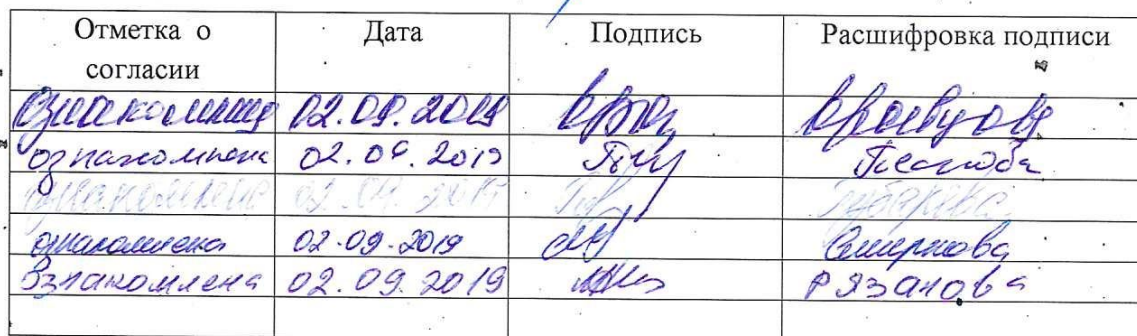 Отметка о согласии Дата Подпись Расшифровка подписи
02.09.2019
ознакомлена 02.09.2019 Пескова
ознакомлена Губарева
ознакомлена 02.09.2019 Смирнова
Ознакомлена 02.09.2019 Рязанова